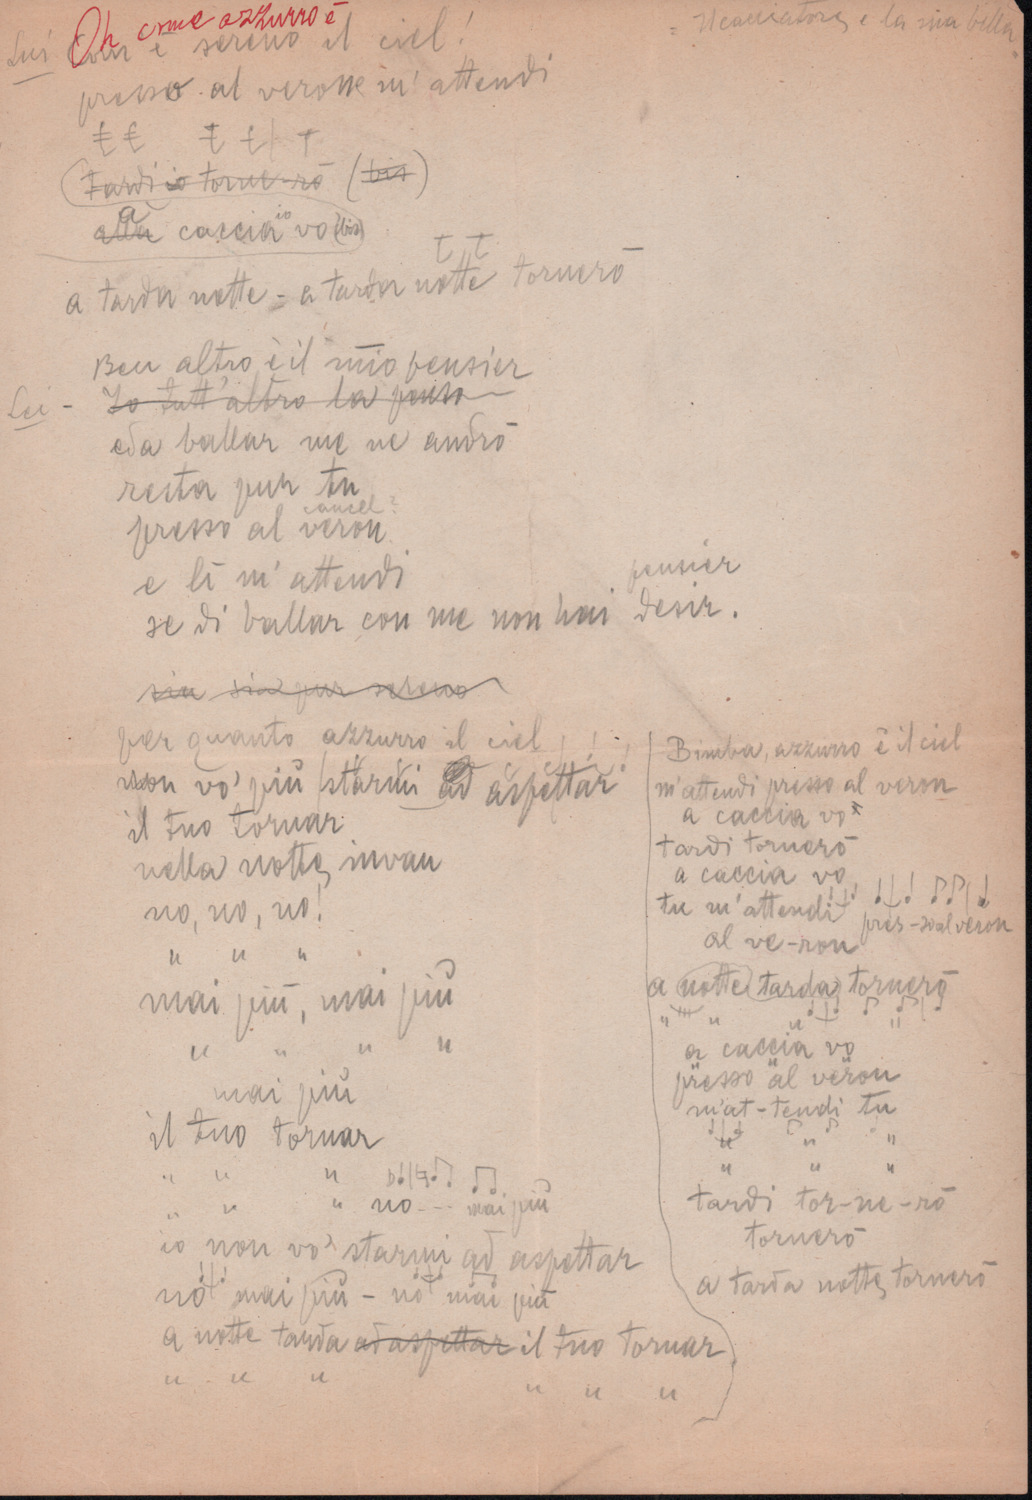 = Il cacciatore, e la sua bella =
Oh come azzurro è
Lui Com'è sereno il ciel!
presso al verone m'attendi
tardi io torne-rò (bis)
alla a caccia io vo (bis)
a tarda notte - a tarda notte tornerò
Ben altro è il mio pensier
Lei - Io tutt'altro la penso
ed a ballar me ne andrò
resta pur tu
cancel?
presso al veron
e lì m'attendi
pensier
se di ballar con me non hai desir.
sia sia pur sereno
per quanto azzurro il ciel
non vo' più starmi ad aspettar
il tuo tornar
nella notte, invan
no, no, no!
" " "
mai più, mai più
" " " "
mai più
il tuo tornar
" " "
" " " no --- mai più
io non vo' starmi ad aspettar
no mai più - no mai più
a notte tarda ad aspettar il tuo tornar
" " " " " "
Bimba, azzurro è il ciel
m'attendi presso al veron
a caccia vo
tardi tornerò
a caccia vo
tu m'attendi
pres-soal veron
al ve-ron
a notte tarda tornerò
" " " "
a caccia vo
presso al veron
m'at-tendi tu
" " "
" " "
tardi tor-ne-rò
tornerò
a tarda notte, tornerò